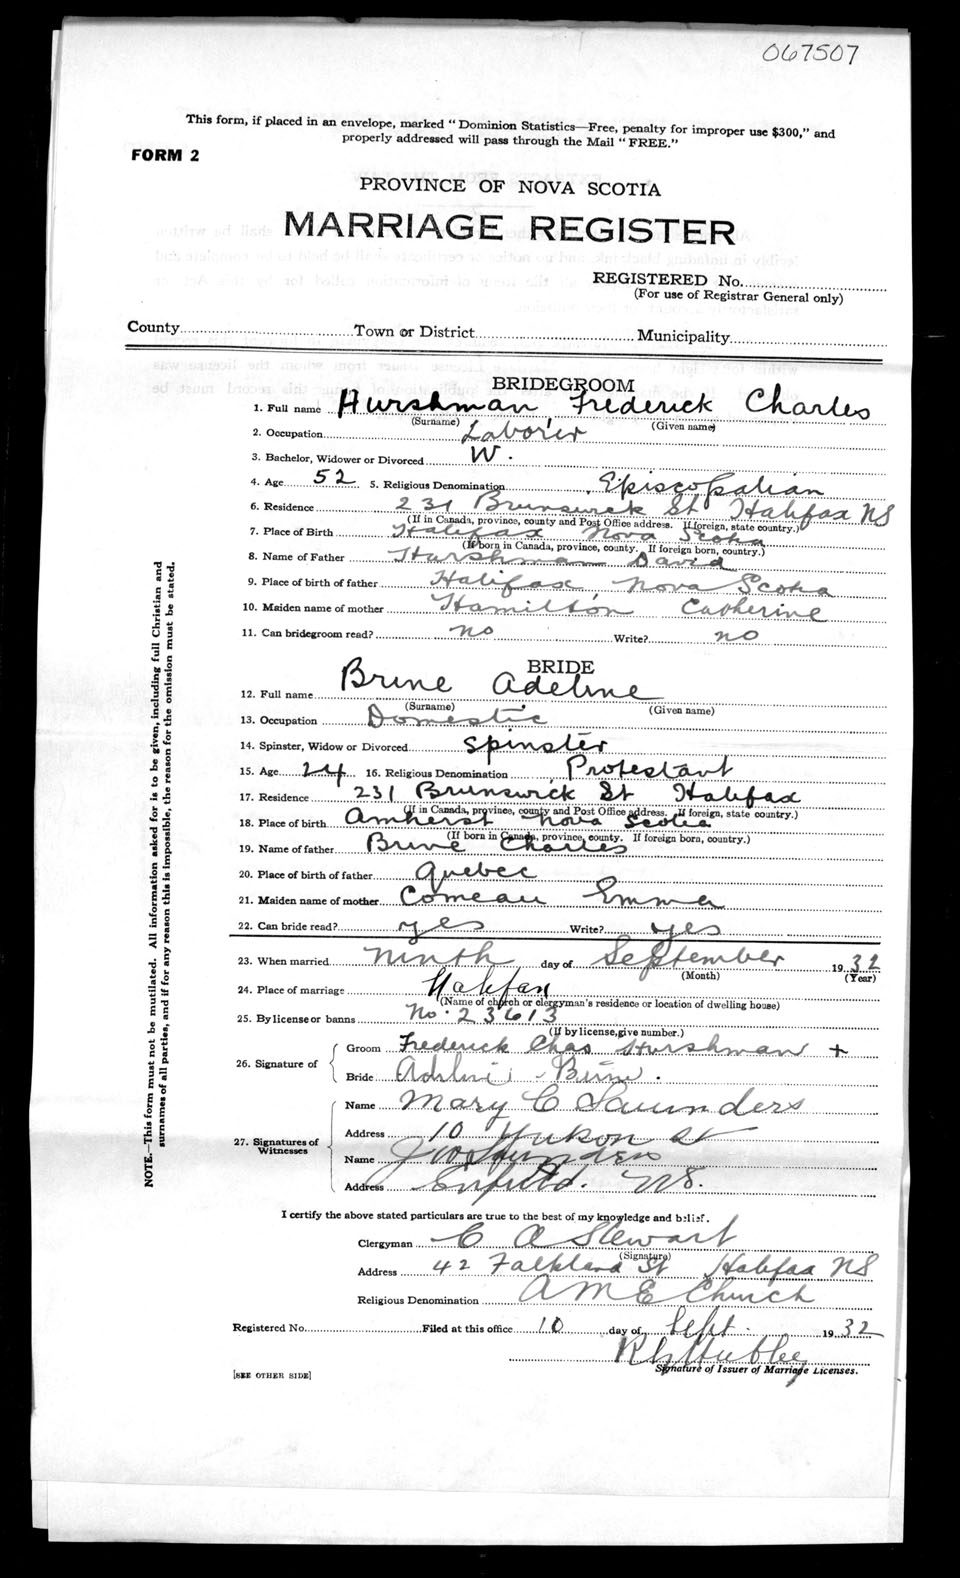 067507
This form, if placed in an envelope, marked "Dominion Statistics—Free, penalty for improper use $300," and
properly addressed will pass through the Mail "FREE."
FORM 2
PROVINCE OF NOVA SCOTIA
MARRIAGE REGISTER
REGISTERED No.
(For use of Registrar General only)
County Town or District Municipality
BRIDEGROOM
1. Full name Hurshman, Frederick Charles
(Surname) (Given name)
2. Occupation Laborer
3. Bachelor, Widower or Divorced W.
4. Age 52 5. Religious Denomination Episcopalian
6. Residence 231 Brunswick St Halifax NS
(If in Canada, province, county and Post Office address. If foreign, state country.)
7. Place of Birth Halifax Nova Scotia
(If born in Canada, province, county. If foreign born, country.)
8. Name of Father Hurshman David
9. Place of birth of father Halifax Nova Scotia
10. Maiden name of mother Hamilton Catherine
11. Can bridegroom read? no Write? no
BRIDE
12. Full name Brine Adeline
(Surname) (Given name)
13. Occupation Domestic
14. Spinster, Widow or Divorced Spinster
15. Age 24 16. Religious Denomination Protestant
17. Residence 231 Brunswick St Halifax
(If in Canada, province, county and Post Office address. If foreign, state country.)
18. Place of birth Amherst Nova Scotia
(If born in Canada, province, county. If foreign born, country.)
19. Name of father Brine Charles
20. Place of birth of father Quebec
21. Maiden name of mother Comeau Emma
22. Can bride read? yes Write? yes
23. When married Ninth day of September 1932
(Month) (Year)
24. Place of marriage Halifax
(Name of church or clergyman's residence or location of dwelling house)
25. By license or banns No. 23613
(If by license, give number.)
26. Signature of
Groom Frederick Chas Hurshman +
Bride Adeline Brine.
27. Signatures of
Witnesses
Name Mary C Saunders
Address 10 Yukon St
Name J W Saunders
Address Enfield. NS.
I certify the above stated particulars are true to the best of my knowledge and belief.
Clergyman C A Stewart
(Signature)
Address 42 Falkland St Halifax NS
Religious Denomination A M E Church
Registered No. Filed at this office 10 day of Sept. 1932
Hubley
Signature of Issuer of Marriage Licenses.
[SEE OTHER SIDE]
NOTE.—This form must not be mutilated. All information asked for is to be given, including full Christian and
surnames of all parties, and if for any reason this is impossible, the reason for the omission must be stated.